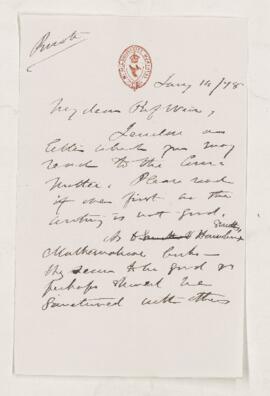 Private
Jany 14/78
My dear Prof Weir,
I enclose a
letter which you may
read to the
matter. Please read
it over first as the
writing is not good.
As to
Mathematical books
they seem to be good &
perhaps should be
sanctioned with others